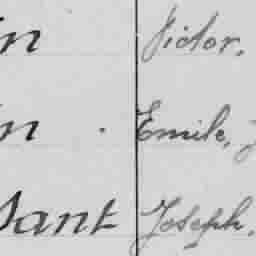 in Victor,
in . Emile, J
sant Joseph,